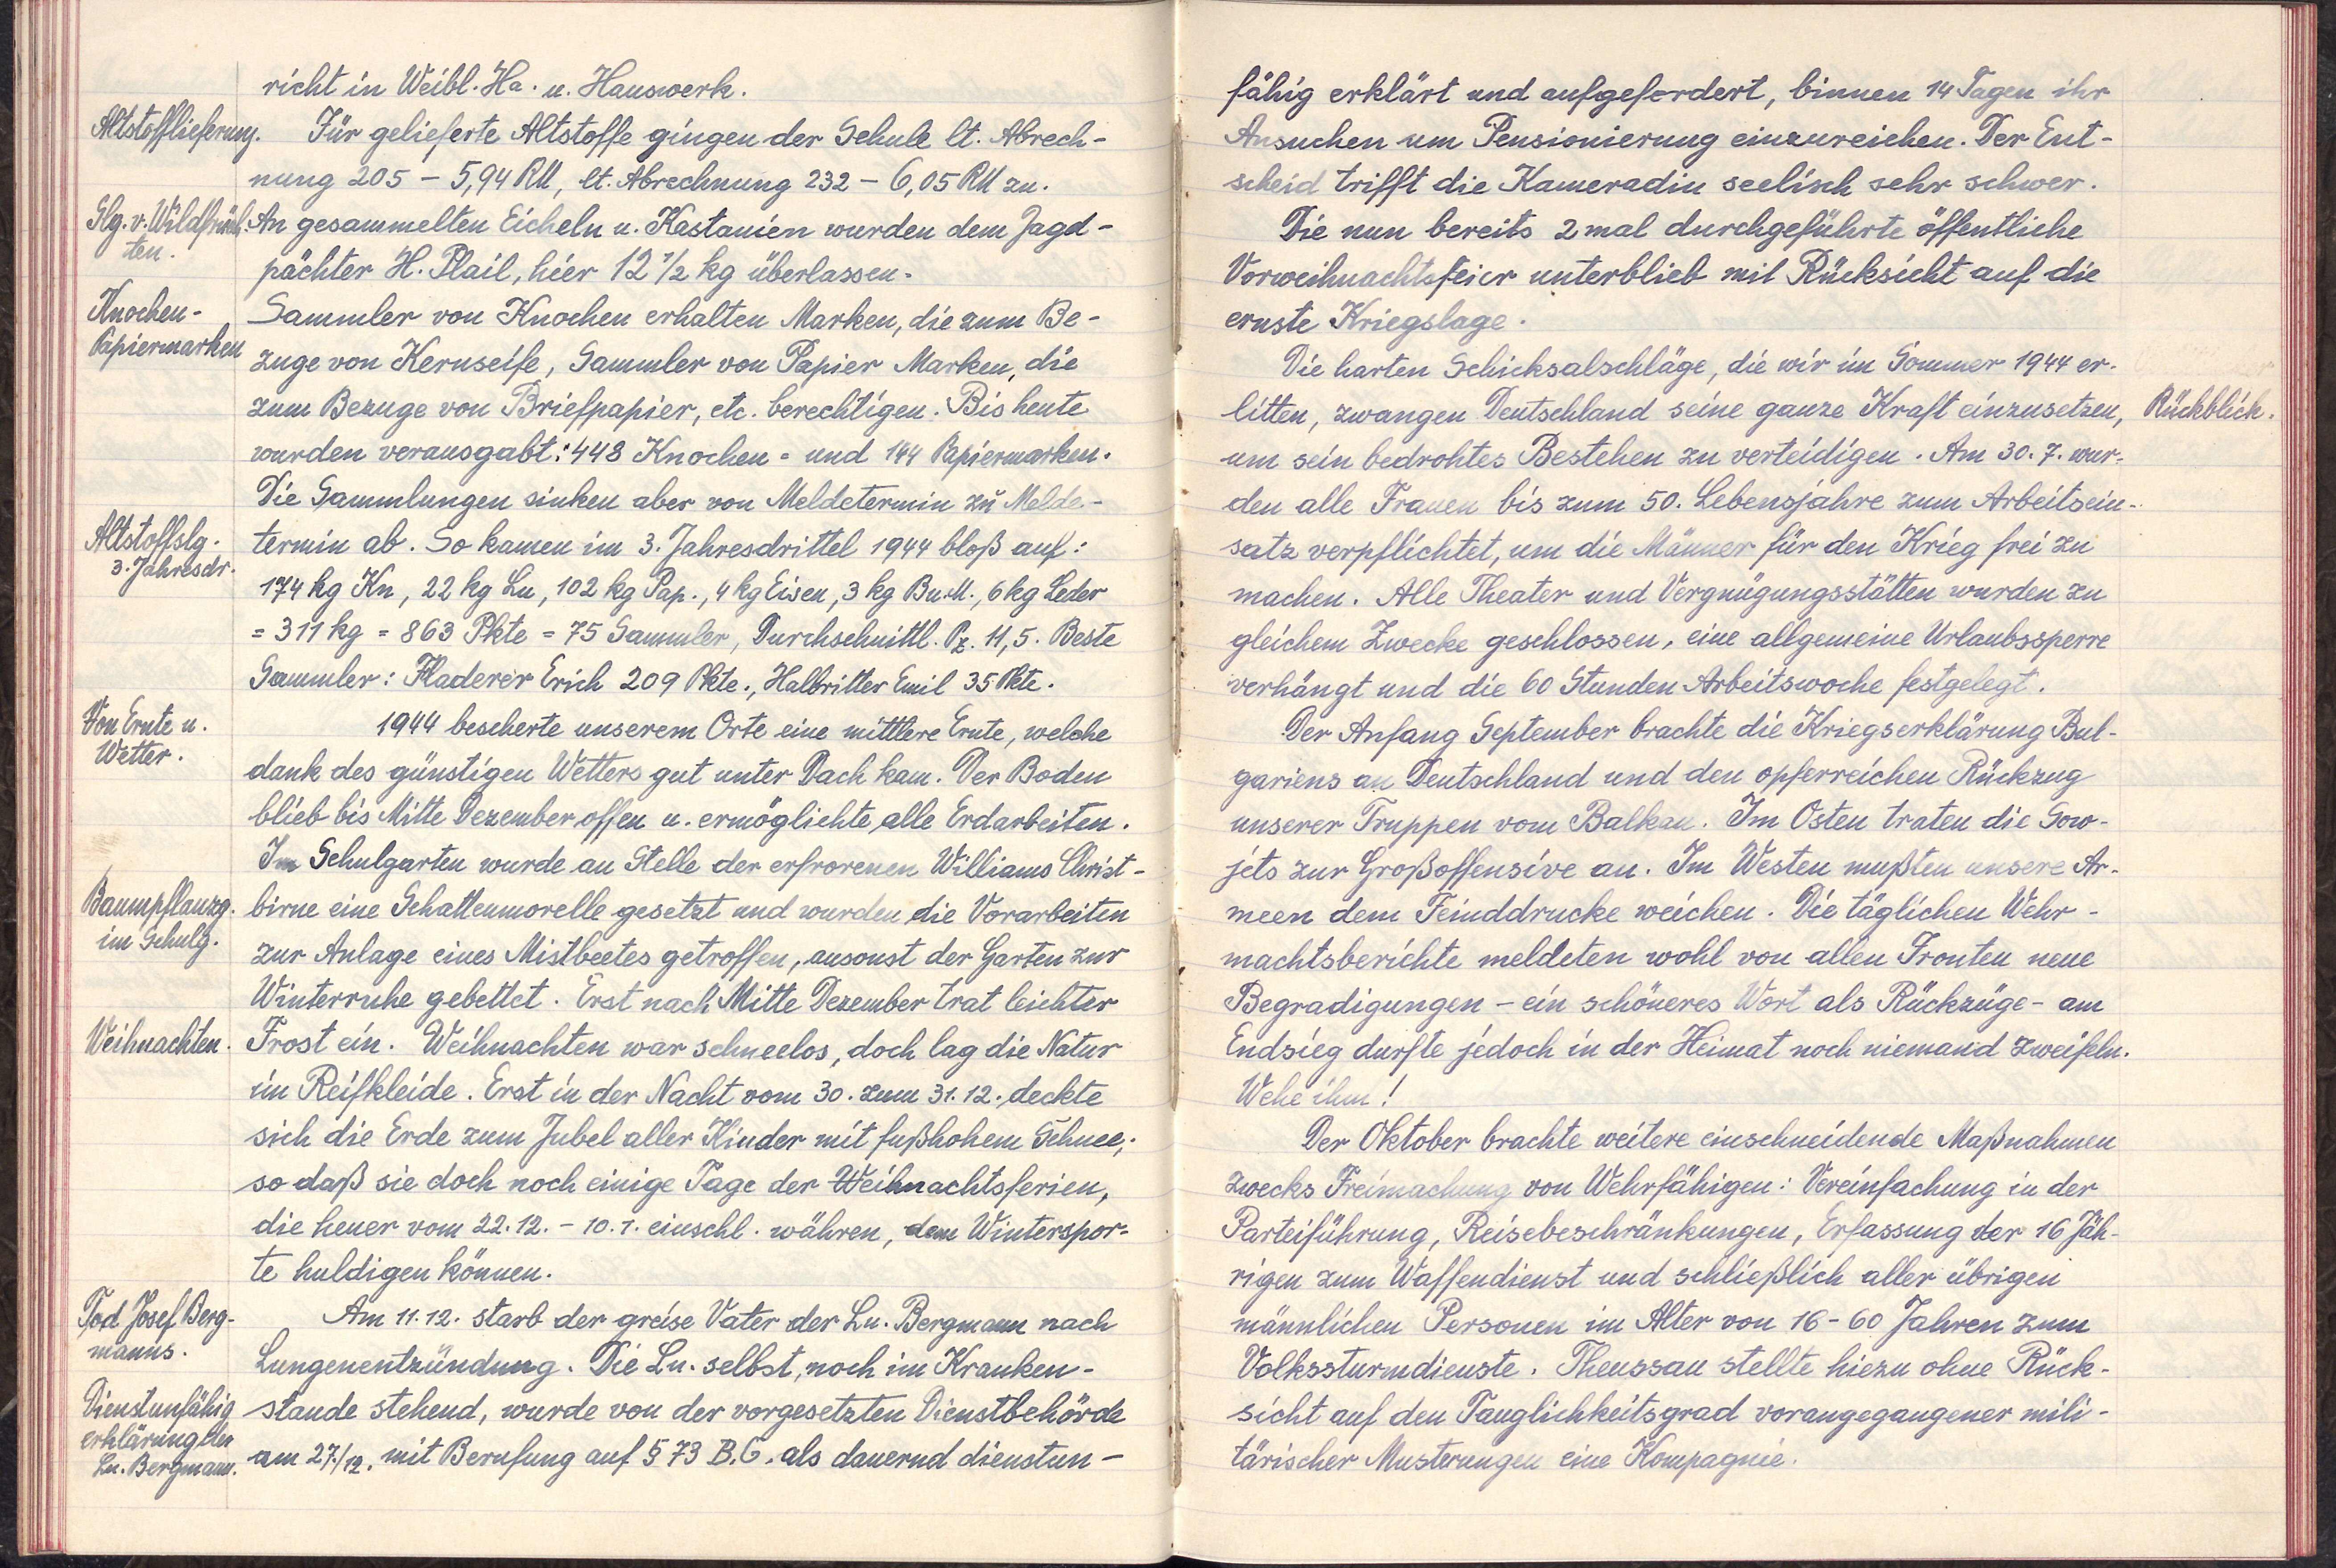 richt in Weibl. Ha. u. Hauswerk.
Altstofflieferung.
Für gelieferte Altstoffe gingen der Schule lt. Abrech-
nung 205 – 5,94 RM, lt. Abrechnung 232 – 6,05 RM zu.
Slg. v. Wildfrüch-
ten.
An gesammelten Eicheln u. Kastanien wurden dem Jagd-
pächter H. Plail, hier 12 1/2 kg überlassen.
Knochen-
Papiermarken
Sammler von Knochen erhalten Marken, die zum Be-
zuge von Kernseife, Sammler von Papier Marken, die
zum Bezuge von Briefpapier, etc. berechtigen. Bis heute
wurden verausgabt: 448 Knochen- und 144 Papiermarken.
Die Sammlungen sinken aber von Meldetermin zu Melde-
Altstoffslg.
3. Jahresdr.
termin ab. So kamen im 3. Jahresdrittel 1944 bloß auf:
174 kg Kn, 22 kg Lu, 102 kg Pap., 4 kg Eisen, 3 kg Bu.M., 6 kg Leder
= 311 kg = 863 Pkte = 75 Sammler, Durchschnittl. Pz. 11,5. Beste
Sammler: Fladerer Erich 209 Pkte., Halbritter Emil 35 Pkte.
Von Ernte u.
Wetter.
1944 bescherte unserem Orte eine mittlere Ernte, welche
dank des günstigen Wetters gut unter Dach kam. Der Boden
blieb bis Mitte Dezember offen u. ermöglichte alle Erdarbeiten.
Im Schulgarten wurde an Stelle der erfrorenen Williams Christ-
Baumpflanzg.
im Schulg.
birne eine Schattenmorelle gesetzt und wurden die Vorarbeiten
zur Anlage eines Mistbeetes getroffen, ansonst der Garten zur
Winterruhe gebettet. Erst nach Mitte Dezember trat leichter
Weihnachten.
Frost ein. Weihnachten war schneelos, doch lag die Natur
im Reifkleide. Erst in der Nacht vom 30. zum 31.12. deckte
sich die Erde zum Jubel aller Kinder mit fußhohem Schnee,
so daß sie doch noch einige Tage der Weihnachtsferien,
die heuer vom 22.12. – 10.1. einschl. währen, dem Winterspor-
te huldigen können.
Tod Josef Berg-
manns.
Am 11.12. starb der greise Vater der Ln. Bergmann nach
Lungenentzündung. Die Ln. selbst, noch im Kranken-
Dienstunfähig
erklärung der
Ln. Bergmann.
stande stehend, wurde von der vorgesetzten Dienstbehörde
am 27./12. mit Berufung auf § 73 B.G. als dauernd dienstun-
fähig erklärt und aufgefordert, binnen 14 Tagen ihr
Ansuchen um Pensionierung einzureichen. Der Ent-
scheid trifft die Kameradin seelisch sehr schwer.
Die nun bereits 2 mal durchgeführte öffentliche
Vorweihnachtsfeier unterblieb mit Rücksicht auf die
ernste Kriegslage.
Die harten Schicksalschläge, die wir im Sommer 1944 er-
litten, zwangen Deutschland seine ganze Kraft einzusetzen,
Rückblick.
um sein bedrohtes Bestehen zu verteidigen. Am 30.7. wur-
den alle Frauen bis zum 50. Lebensjahre zum Arbeitsein-
satz verpflichtet, um die Männer für den Krieg frei zu
machen. Alle Theater und Vergnügungsstätten wurden zu
gleichem Zwecke geschlossen, eine allgemeine Urlaubssperre
verhängt und die 60 Stunden Arbeitswoche festgelegt.
Der Anfang September brachte die Kriegserklärung Bul-
gariens an Deutschland und den opferreichen Rückzug
unserer Truppen vom Balkan. Im Osten traten die Sow-
jets zur Großoffensive an. Im Westen mußten unsere Ar-
meen dem Feinddrucke weichen. Die täglichen Wehr-
machtsberichte meldeten wohl von allen Fronten neue
Begradigungen – ein schöneres Wort als Rückzüge – am
Endsieg durfte jedoch in der Heimat noch niemand zweifeln.
Wehe ihm!
Der Oktober brachte weitere einschneidende Maßnahmen
zwecks Freimachung von Wehrfähigen: Vereinfachung in der
Parteiführung, Reisebeschränkungen, Erfassung der 16 Jäh-
rigen zum Waffendienst und schließlich aller übrigen
männlichen Personen im Alter von 16-60 Jahren zum
Volkssturmdienste. Theussau stellte hiezu ohne Rück-
sicht auf den Tauglichkeitsgrad vorangegangener mili-
tärischer Musterungen eine Kompagnie.